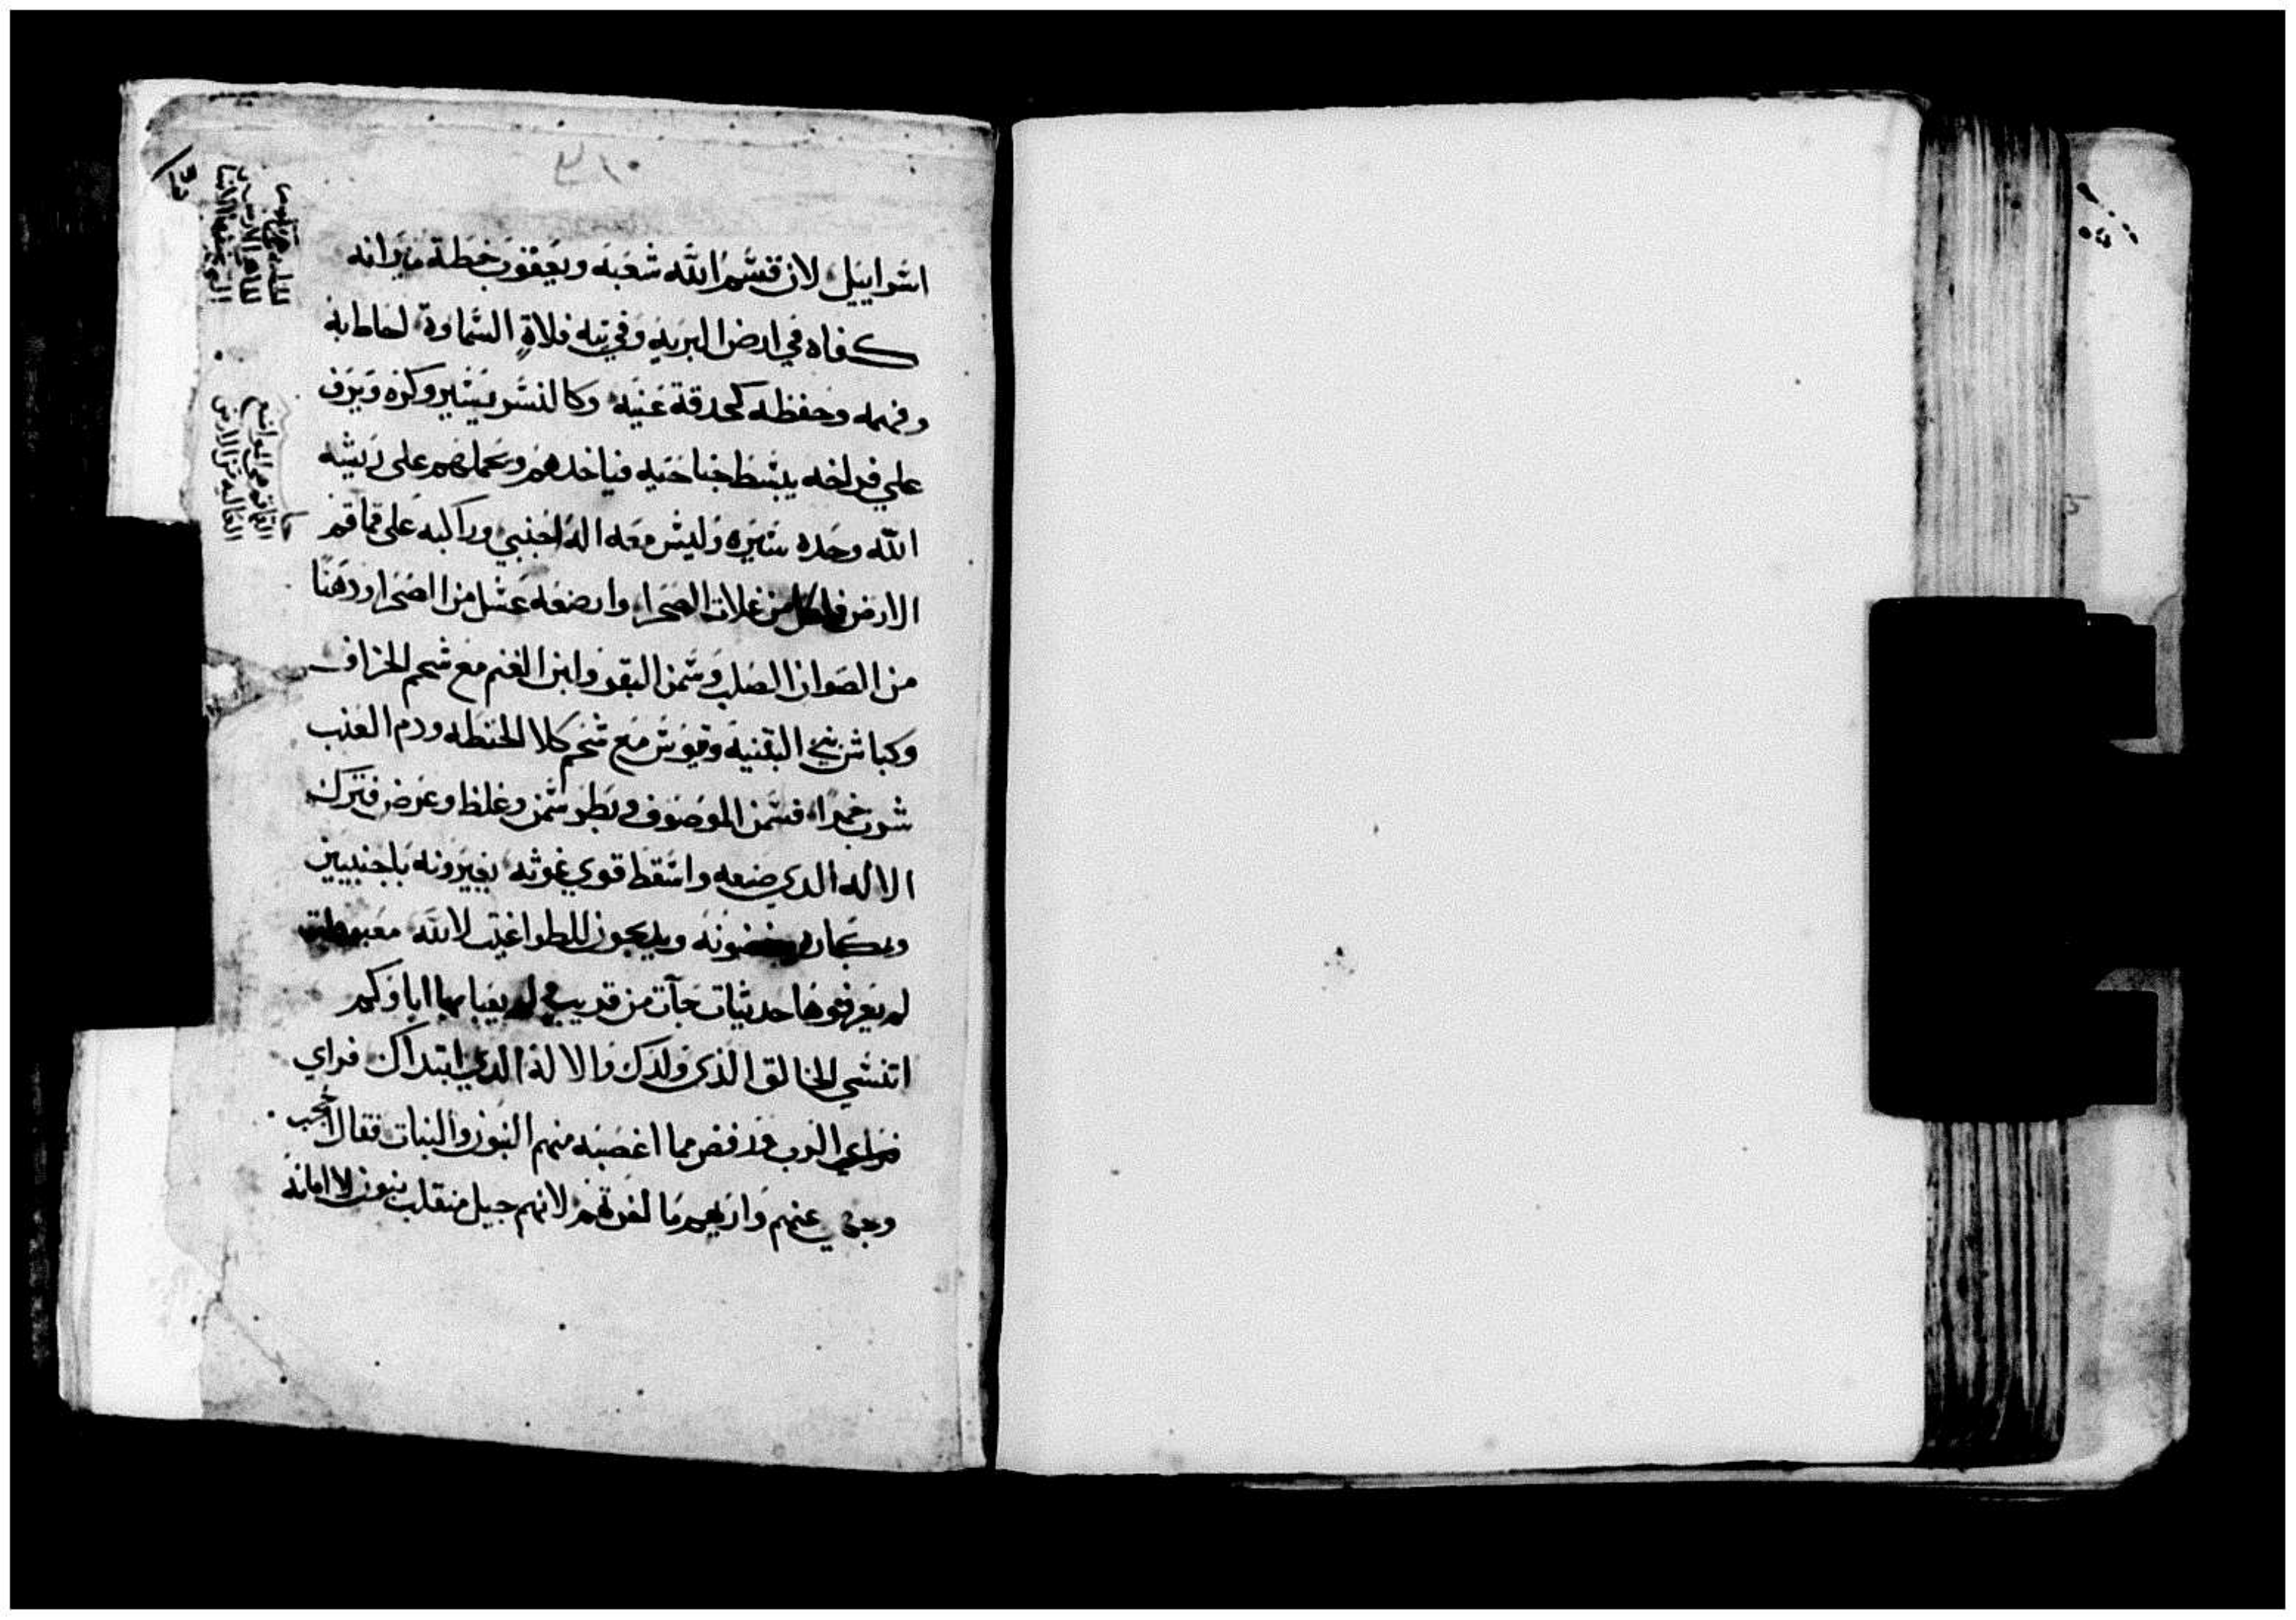 اسراييل لان قسم الله شعبه ويعقوب خطة ميراثه
كفاه في ارض البريه وفي تيه فلاة السماوة احاط به
وفهمه وحفظه كحدقة عينه وكالنسر يستير وكره ويرف
علي فراخه يبسط جناحيه فياخدهم ويحملهم على ريشه
الله وحده سيره وليس معه اله اجنبي وراكبه على قماقم
الارض من غلات الصحرا وارضعه عسل من الصخرا ودهنا
من الصوان الصلب وسمن البقر ولبن الغنم مع شحم الخراف
وكباش بني البثنية وتيوس مع شحم كلا الحنطه ودم العنب
شرب خمرا فسمن الموصوف وبطر سمن وغلظ وعرض فترك
الاله الدي صنعه واسقط قوي غوثه يغيرونه باجنبيين
ويدبحون للطواغيت لالله معبودات
لم يعرفوها حدثيات جآت من قريب لم يعبا بها اباوكم
اتنسي الخالق الذي ولدك والا له الدي ابتداك فراي
الرب ورفض مما اغضبه منهم البنون والبنات فقال احجب
وجهي عنهم واريهم ما اخرتهم لانهم جيل منقلب بنون لا امانه
القماقم هي المواضع
العاليه من الارض